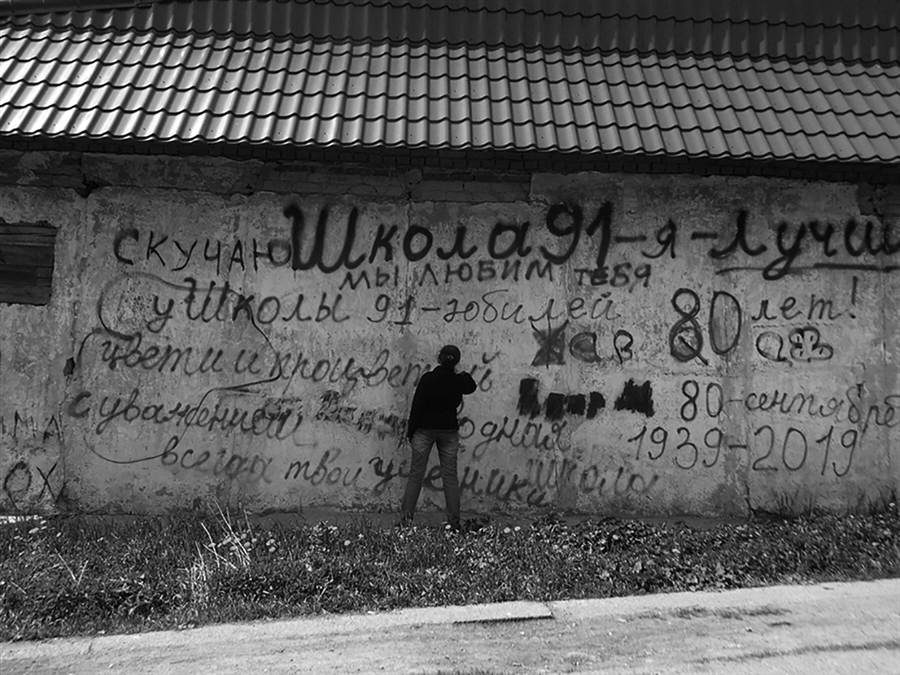 скучаю Школа 91-я-Лучш
мы любим тебя
у Школы 91-юбилей 80 лет!
цвети и процветай
с уважением одная 80-сентябре
1939-2019
всегда твои ученики школа
ОХ